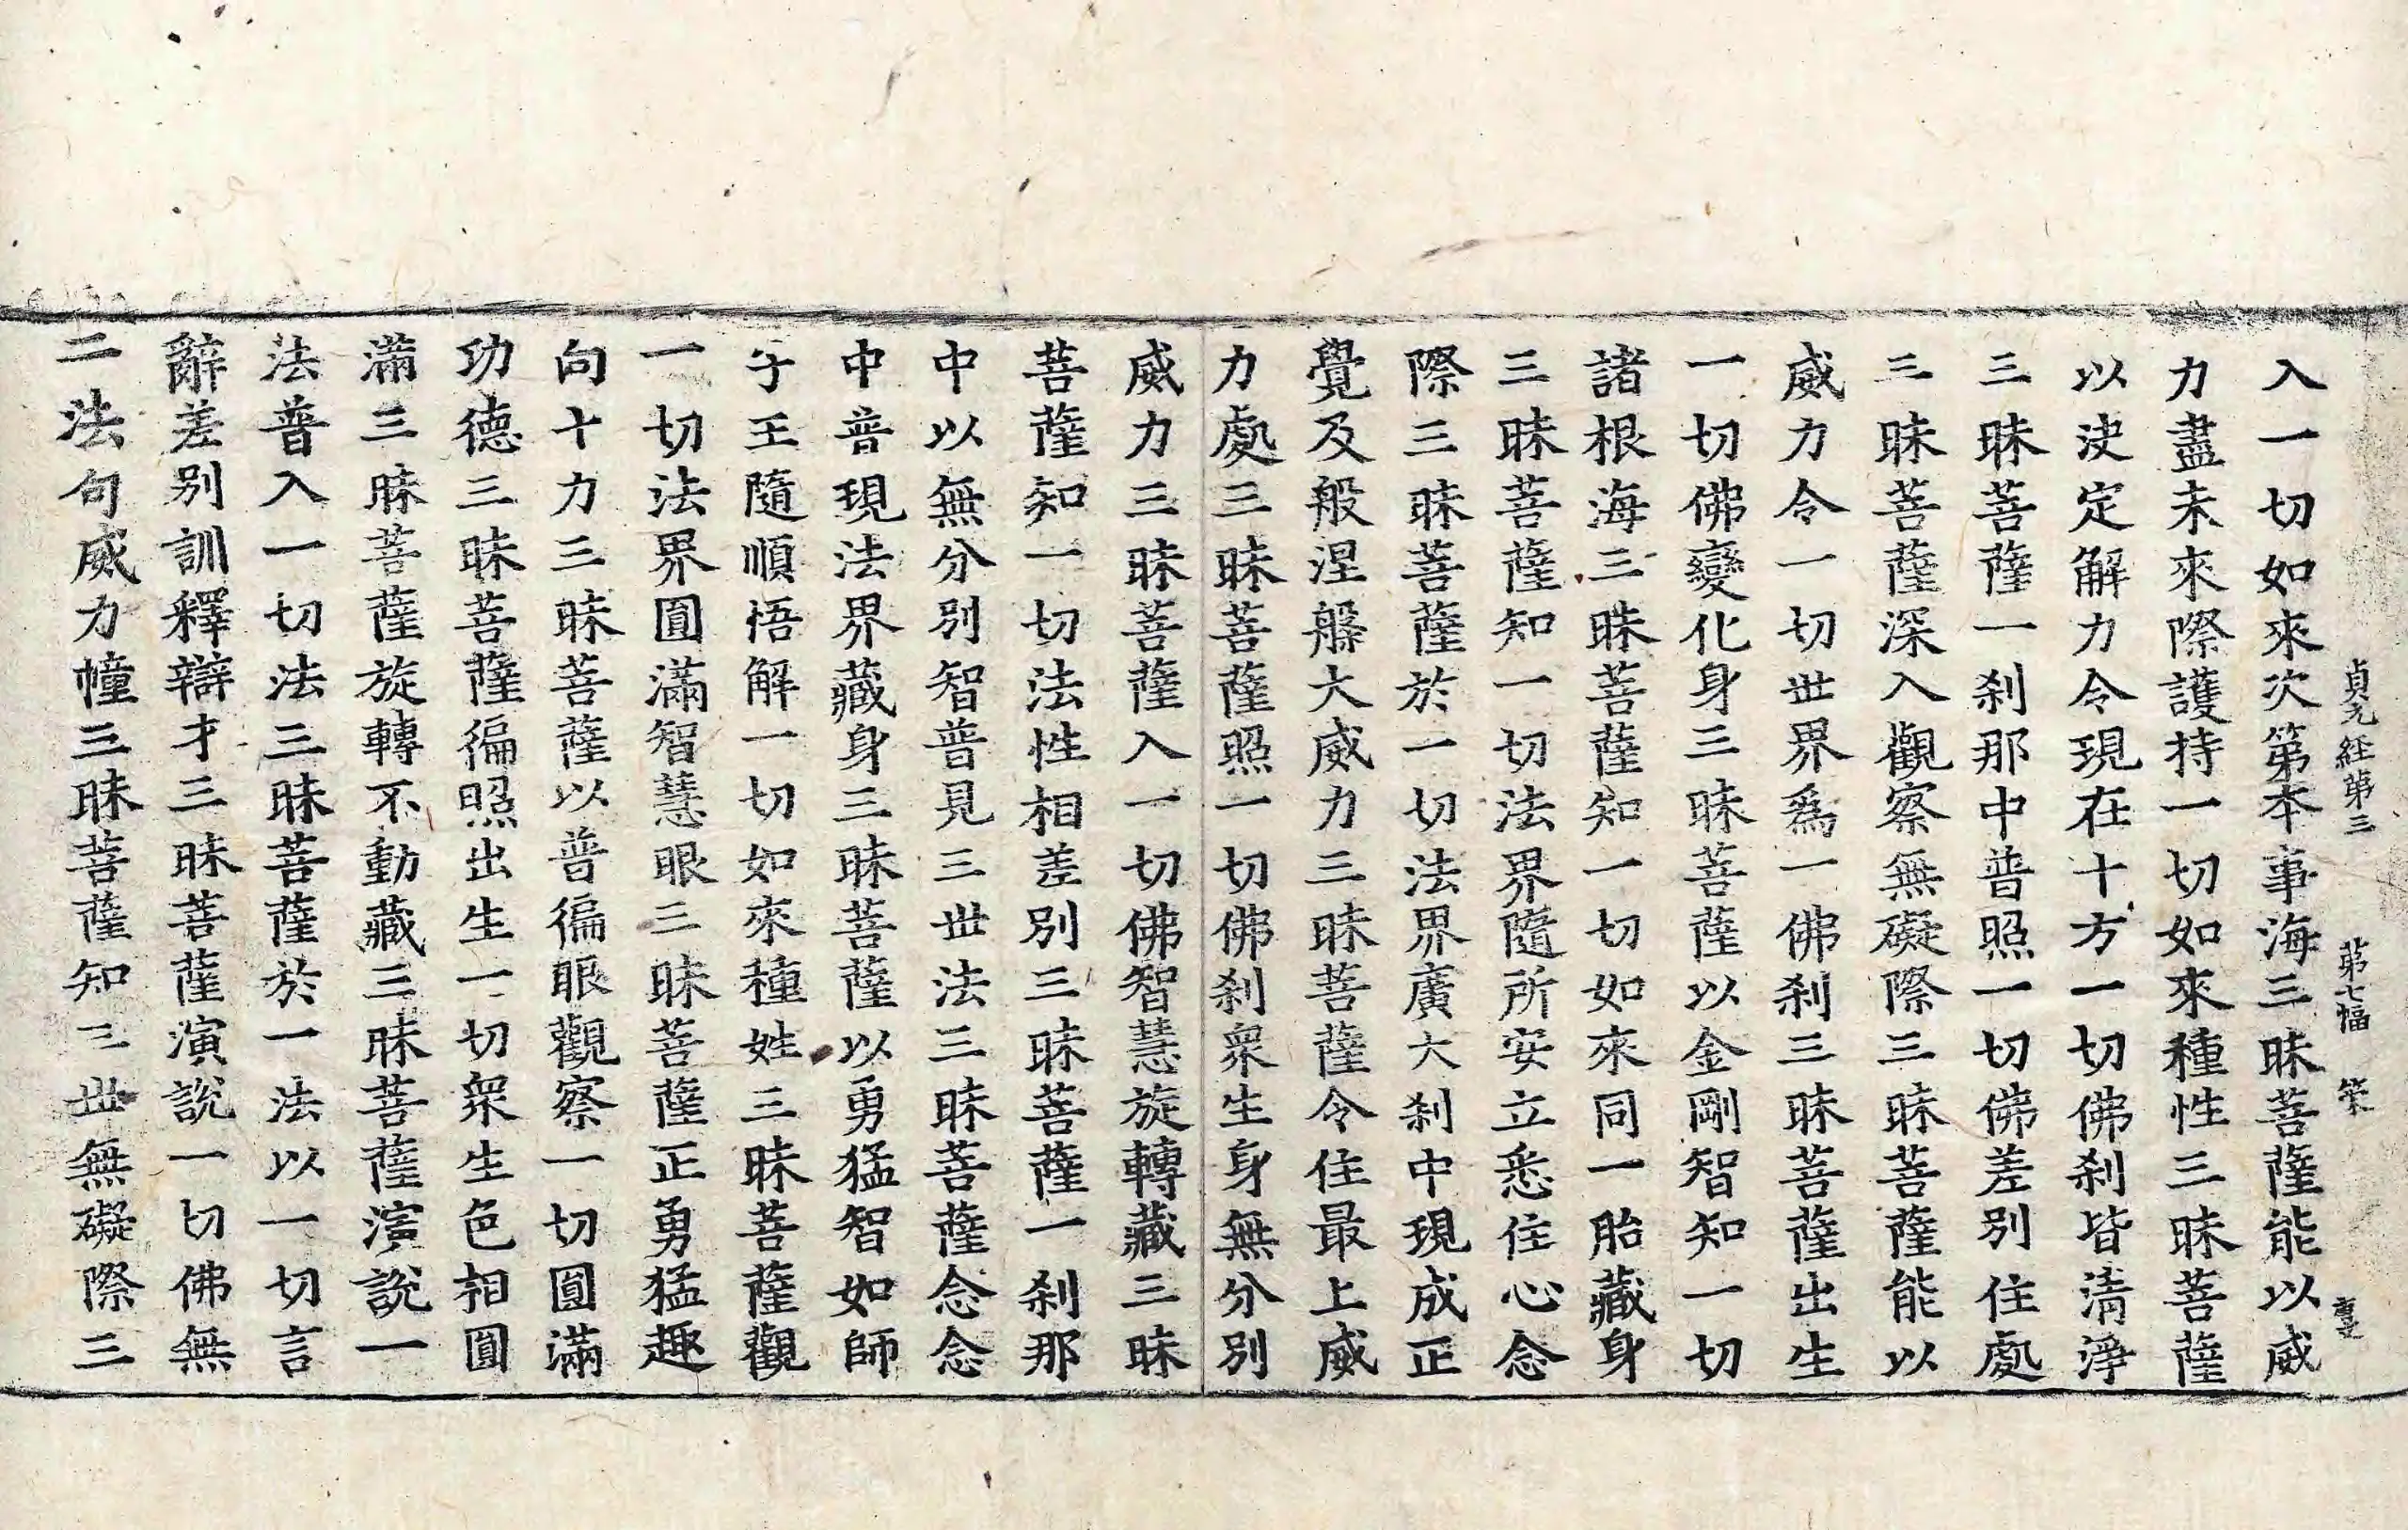 貞元經第三 第七幅 榮
入一切如來次第本事海三昧菩薩能以威
力盡未來際護持一切如來種性三昧菩薩
以决定解力令現在十方一切佛刹皆清淨
三昧菩薩一刹那中普照一切佛差別住處
三昧菩薩深入觀察無礙際三昧菩薩能以
威力令一切世界爲一佛刹三昧菩薩出生
一切佛變化身三昧菩薩以金剛智知一切
諸根海三昧菩薩知一切如來同一胎藏身
三昧菩薩知一切法界隨所安立悉住心念
際三昧菩薩於一切法界廣大刹中現成正
覺及般涅槃大威力三昧菩薩令住最上威
力處三昧菩薩照一切佛刹衆生身無分別
威力三昧菩薩入一切佛智慧旋轉藏三昧
菩薩知一切法性相差別三昧菩薩一刹那
中以無分別智普見三世法三昧菩薩念念
中普現法界藏身三昧菩薩以勇猛智如師
子王隨順悟解一切如來種姓三昧菩薩觀
一切法界圓滿智慧眼三昧菩薩正勇猛趣
向十力三昧菩薩以普徧眼觀察一切圓滿
功德三昧菩薩徧照出生一切衆生色相圓
滿三昧菩薩旋轉不動藏三昧菩薩演說一
法普入一切法三昧菩薩於一法以一切言
辭差別訓釋辯才三昧菩薩演說一切佛無
二法句威力幢三昧菩薩知三世無礙際三